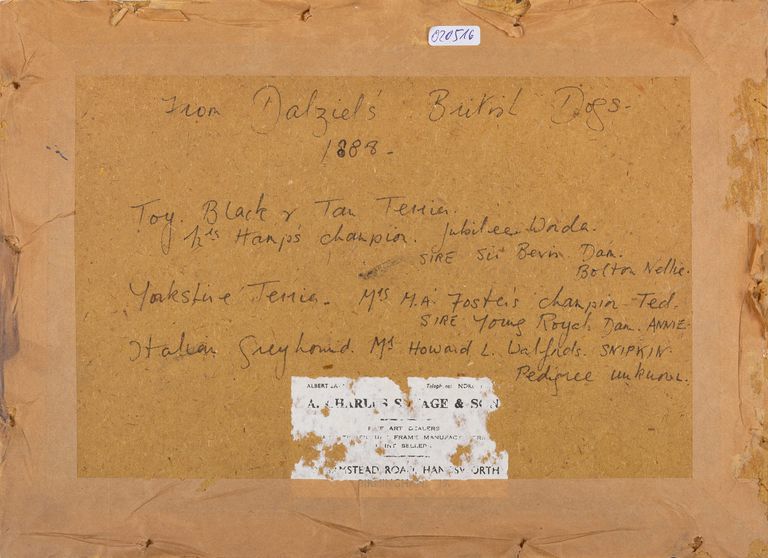 020516
From Dalziel's British Dogs-
1888-
Toy. Black & Tan Terrier.
Champion. Jubilee Wonder.
SIRE Sir Bevis Dam.
Bolton Nellie.
Yorkshire Terrier- Mrs M.A. Foster's champion Ted-
SIRE Young Royal. Dam. ANNIE-
Italian Greyhound. Howard L. SNIPKIN-
Pedigree unknown.
ALBERT Teleph NOR
A. CHARLES S AGE & SON
FINE ART DEALERS
FRAME MANUFAC
INT SELLER
MSTEAD ROAD, HANDSWORTH